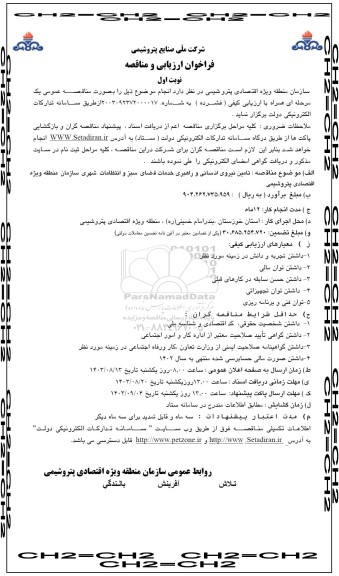 شرکت ملی صنایع پتروشیمی
فراخوان ارزیابی و مناقصه
نوبت اول
سازمان منطقه ویژه اقتصادی پتروشیمی در نظر دارد انجام موضوع ذیل را بصورت مناقصه عمومی یک
مرحله ای همراه با ارزیابی کیفی ( فشرده ) به شماره ۲۰۰۳۰۹۲۳۷۲۰۰۰۰۱۷ ازطریق سامانه تدارکات
الکترونیکی دولت برگزار نماید .
ملاحظات ضروری : کلیه مراحل برگزاری مناقصه اعم از دریافت اسناد ، پیشنهاد مناقصه گران و بازگشایی
پاکت ها از طریق درگاه سامانه تدارکات الکترونیکی دولت ( ستاد) به آدرس WWW.Setadiran.ir انجام
خواهد شد بنابر این لازم است مناقصه گران برای شرکت دراین مناقصه ، کلیه مراحل ثبت نام در سایت
مذکور و دریافت گواهی امضای الکترونیکی را طی نموده باشند .
الف) موضوع مناقصه : تامین نیروی انسانی و راهبری خدمات فضای سبز و انتظامات شهری سازمان منطقه ویژه
اقتصادی پتروشیمی
ب) مبلغ برآورد ( به ریال ) : ۹۰۴،۲۶۲،۷۳۵،۹۵۹
ج ) مدت انجام کار: ۱۲ماه
د) محل اجرای کار : استان خوزستان ،بندرامام خمینی(ره) ، منطقه ویژه اقتصادی پتروشیمی
و) مبلغ تضمین: ۳۰،۶۸۵،۲۵۴،۷۲۰ (یکی از تضامین معتبر در آئین نامه تضمین معاملات دولتی)
ز ) معیارهای ارزیابی کیفی:
۱-داشتن تجربه و دانش در زمینه مورد نظر
۲-داشتن توان مالی
۳-داشتن حسن سابقه در کارهای قبلی
۴- داشتن توان تجهیزاتی
۵-توان فنی و برنامه ریزی
ح) حداقل شرایط مناقصه گران :
۱- داشتن شخصیت حقوقی، کد اقتصادی و شناسه ملی
۲-داشتن گواهی تأیید صلاحیت معتبر از اداره کار و امور اجتماعی
۳-داشتن گواهینامه صلاحیت ایمنی از وزارت تعاون ،کار ورفاه اجتماعی در زمینه مورد نظر
۴-داشتن صورت مالی حسابرسی شده منتهی به سال ۱۴۰۲
ط) زمان ارسال به صفحه اعلان عمومی : ساعت ۰۸،۰۰ روز یکشنبه تاریخ ۱۴۰۳/۰۸/۱۳
ی) مهلت زمانی دریافت اسناد : ساعت ۱۳،۰۰ روزیکشنبه تاریخ ۱۴۰۳/۰۸/۲۰
ک ) مهلت ارسال پاکت پیشنهاد: ساعت ۱۳،۰۰ روز یکشنبه تاریخ ۱۴۰۳/۰۹/۰۴
ل) زمان گشایش : مطابق اطلاعات مندرج در سامانه ستاد
م ) مدت اعتبار پیشنهادات : سه ماه و قابل تمدید برای سه ماه دیگر
اطلاعات تکمیلی مناقصه فوق از طریق وب سایت " سامانه تدارکات الکترونیکی دولت"
به آدرس http://www.Setadiran.ir و http://www.petzone.ir قابل دسترسی می باشد.
روابط عمومی سازمان منطقه ویژه اقتصادی پتروشیمی
تلاش آفرینش بالندگی
CH2=CH2 CH2=CH2 CH2=CH2